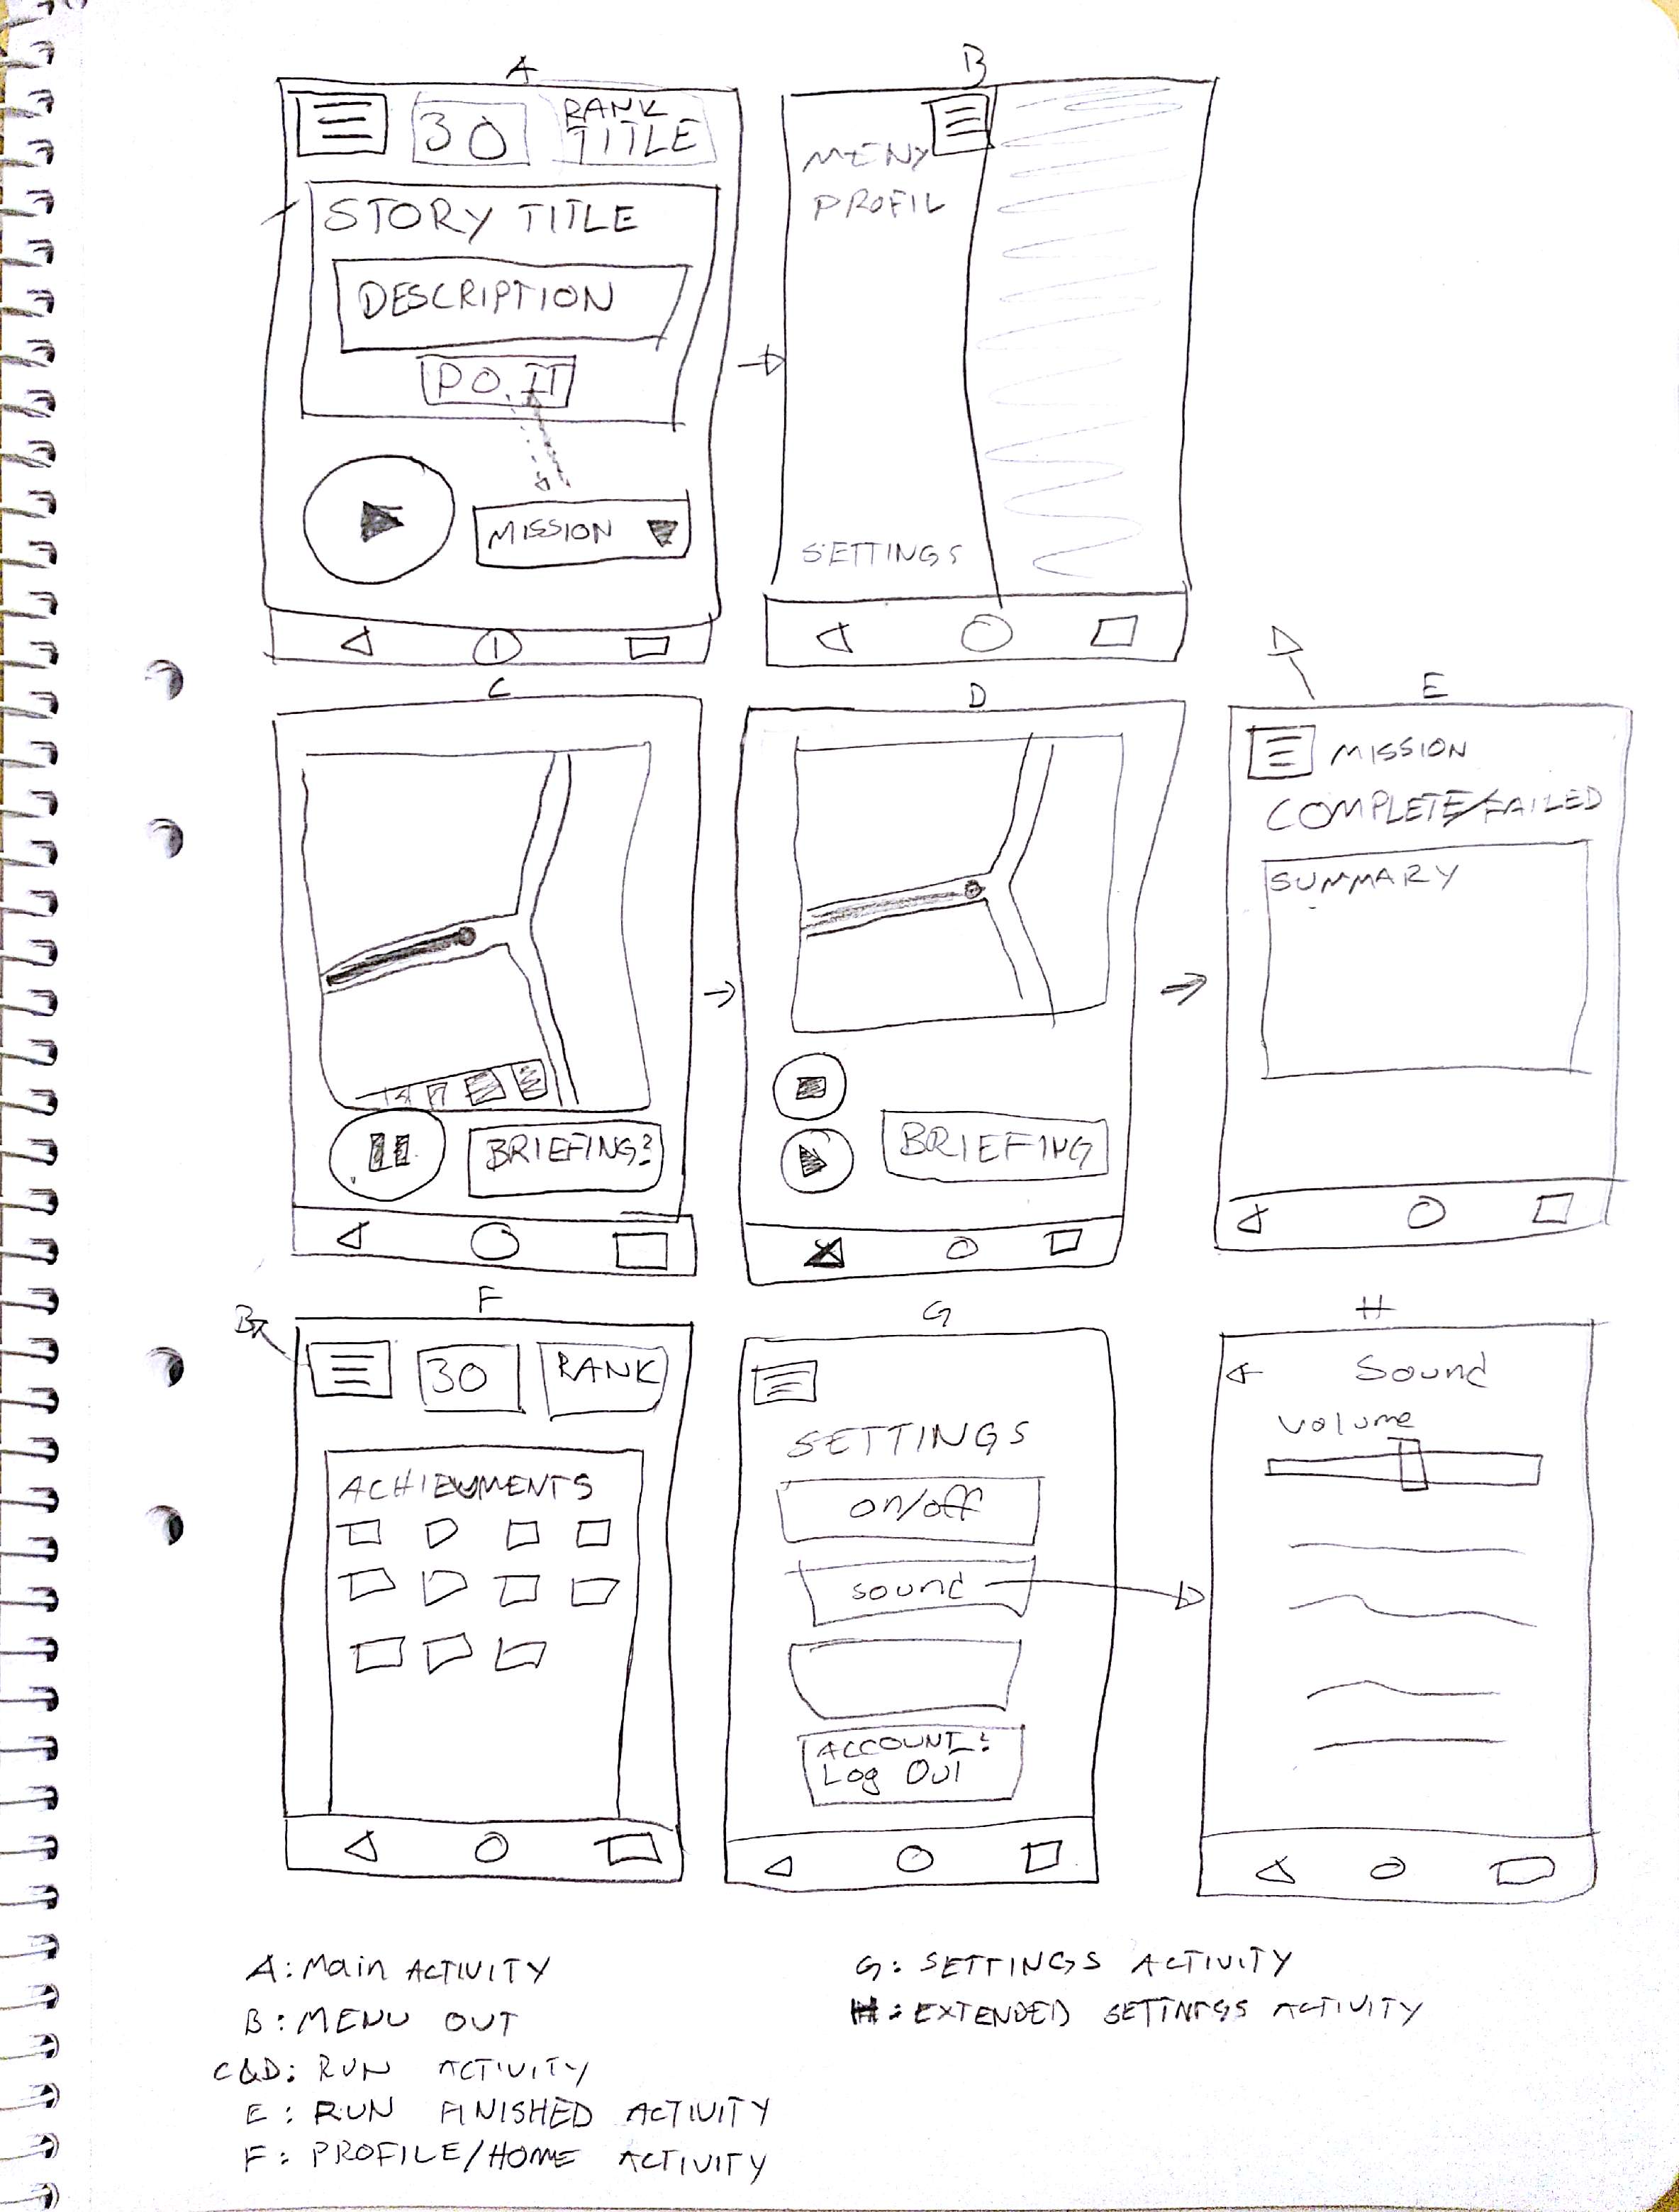 A
30
RANK
TITLE
STORY TITLE
DESCRIPTION
DO IT
MISSION
B
MENY
PROFIL
SETTINGS
C
BRIEFING?
D
BRIEFING
E
MISSION
COMPLETE/FAILED
SUMMARY
F
B
30
RANK
ACHIEVMENTS
G
SETTINGS
on/off
sound
ACCOUNT?
Log OUT
H
Sound
Volume
A: Main ACTIVITY
B: MENU OUT
C&D: RUN ACTIVITY
E: RUN FINISHED ACTIVITY
F: PROFILE/HOME ACTIVITY
G: SETTINGS ACTIVITY
H: EXTENDED SETTINGS ACTIVITY